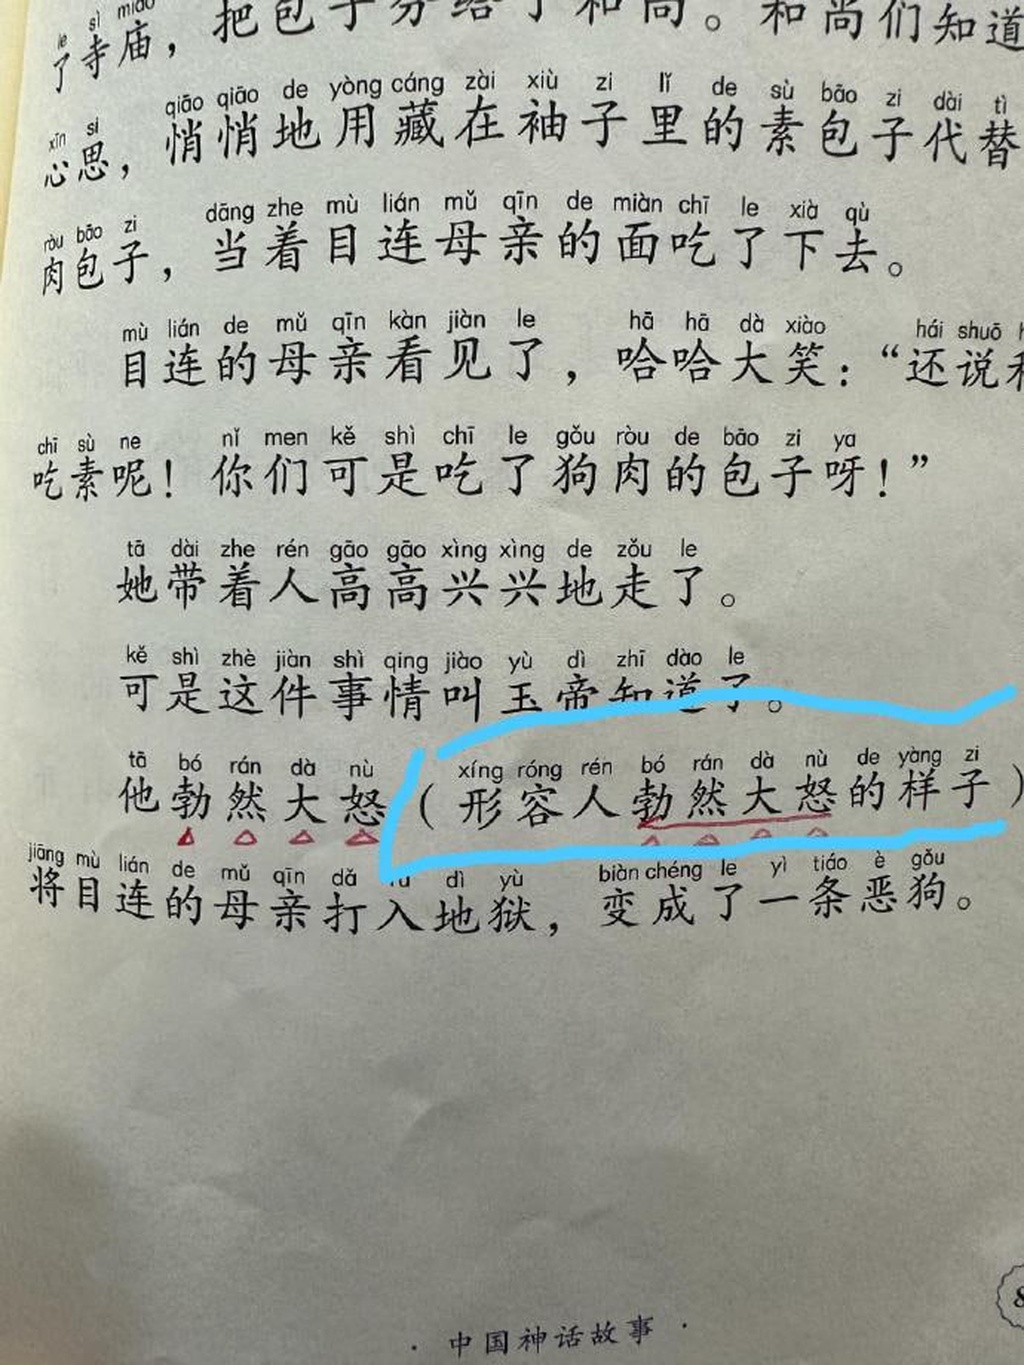 了寺庙，把包子分给了和尚。和尚们知道
qiāo qiāo de yòng cáng zài xiù zi lǐ de sù bāo zi dài tì
心思，悄悄地用藏在袖子里的素包子代替
ròu bāo zi dāng zhe mù lián mǔ qīn de miàn chī le xià qù
肉包子，当着目连母亲的面吃了下去。
mù lián de mǔ qīn kàn jiàn le hā hā dà xiào hái shuō
目连的母亲看见了，哈哈大笑：“还说和
chī sù ne nǐ men kě shì chī le gǒu ròu de bāo zi ya
吃素呢！你们可是吃了狗肉的包子呀！”
tā dài zhe rén gāo gāo xìng xìng de zǒu le
她带着人高高兴兴地走了。
kě shì zhè jiàn shì qing jiào yù dì zhī dào le
可是这件事情叫玉帝知道了。
tā bó rán dà nù xíng róng rén bó rán dà nù de yàng zi
他勃然大怒（形容人勃然大怒的样子）
jiāng mù lián de mǔ qīn dǎ dì yù biàn chéng le yì tiáo è gǒu
将目连的母亲打入地狱，变成了一条恶狗。
·中国神话故事·